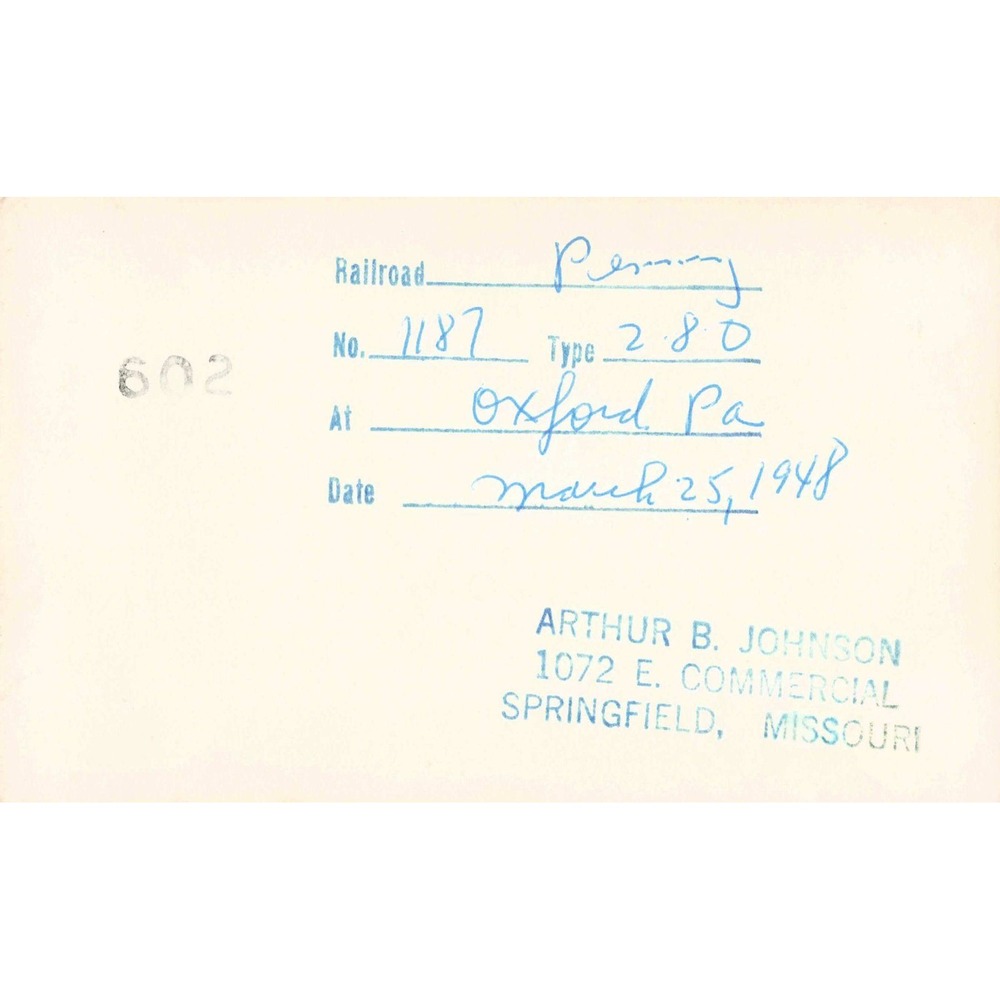 Railroad Pennsy
No. 1187 Type 2-8-0
602
At Oxford Pa
Date March 25, 1948
ARTHUR B. JOHNSON
1072 E. COMMERCIAL
SPRINGFIELD, MISSOURI